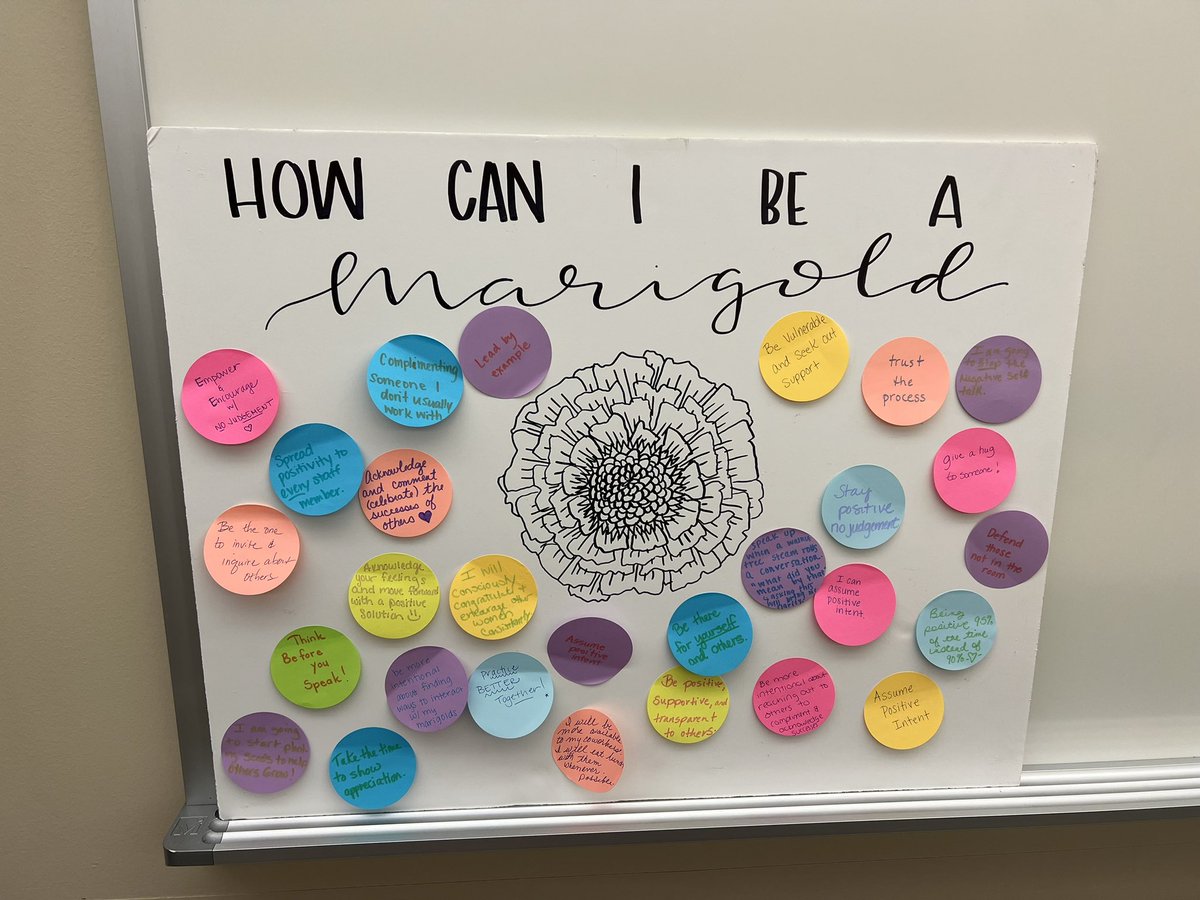 HOW CAN I BE A
marigold
Empower
&
Encourage
w/
NO JUDGEMENT
Complimenting
someone I
don't usually
work with
Lead by
example
Be Vulnerable
and seek out
support
trust
the
process
I am going
to stop the
Negative self
talk.
Spread
positivity to
every staff
member.
Acknowledge
and comment
(celebrate) the
successes of
others
give a hug
to someone!
Stay
positive
no judgement
Be the one
to invite &
inquire about
others
Acknowledge
your feelings
and move forward
with a positive
solution
I will
consciously
congratulate &
women
coworkers
speak up
when a walnut
tree steam rolls
a conversation.
"what did you
mean by that"
asking this
will bring
clarity
I can
assume
positive
intent.
Defend
those
not in the
room
Being
positive 95%
of the time
instead of
90%.
Think
Before you
Speak!
be more
intentional
about finding
ways to interact
w/ my
marigolds
Practice
BETTER
Together!
Assume
positive
intent
Be there
for yourself
and others.
Be positive,
supportive, and
transparent
to others.
Be more
intentional about
reaching out to
others to
compliment &
acknowledge
success
Assume
Positive
Intent
I am going
to start plant
ing seeds to help
others Grow!
Take the time
to show
appreciation.
I will be
more available
to my coworkers.
I will eat lunch
with them
whenever
possible.